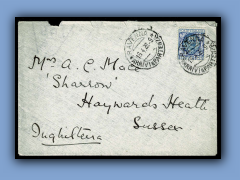 Mrs A. C. Mac
'Sharrow'
Haywards Heath
Sussex
Inghilterra